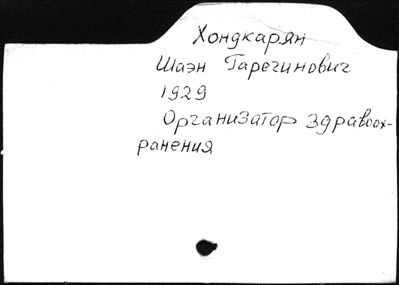 Хондкарян
Шаэн Гарегинович
1929
Организатор здравоох-
ранения